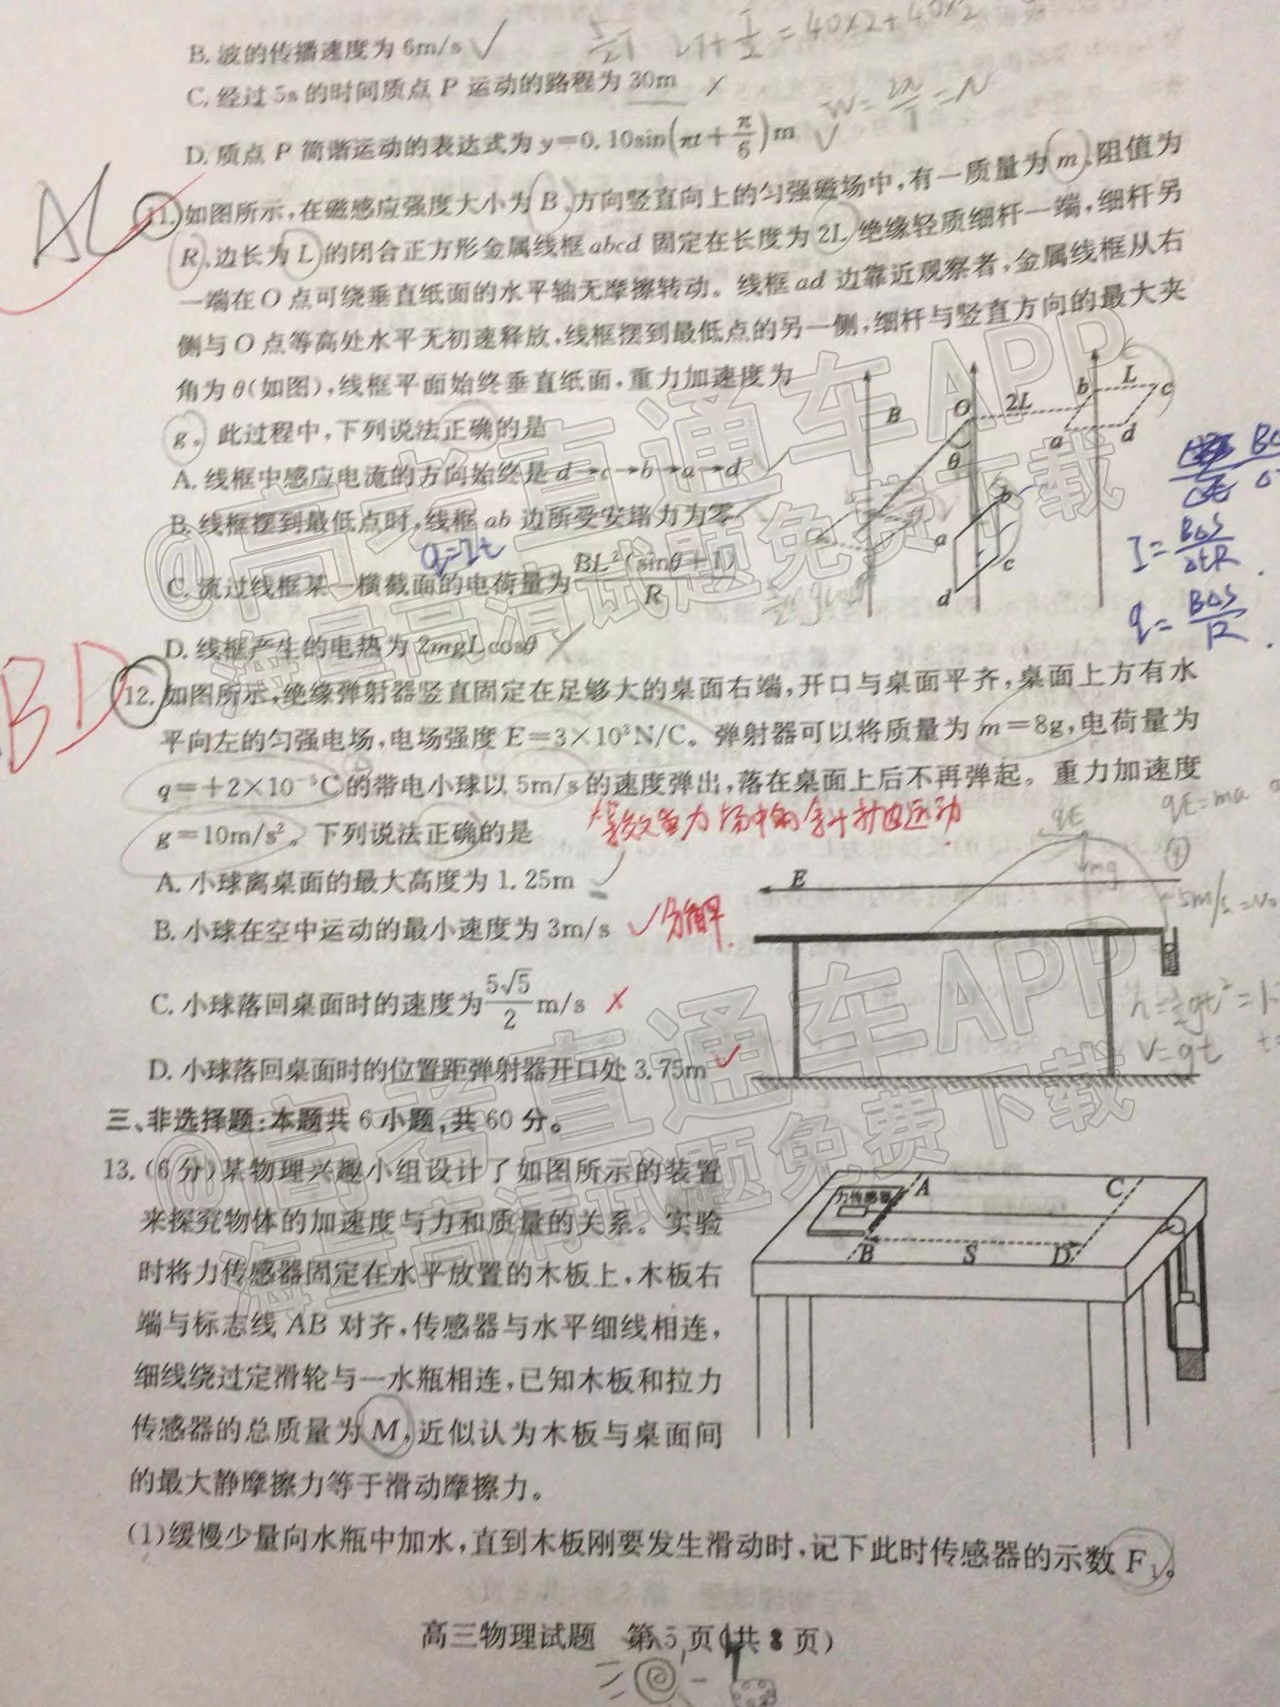 B. 波的传播速度为 6m/s ✓
C. 经过 5s 的时间质点 P 运动的路程为 30m ×
D. 质点 P 简谐运动的表达式为 y=0.10sin(πt+π/6)m ✓
AC
11. 如图所示,在磁感应强度大小为 B、方向竖直向上的匀强磁场中,有一质量为 m、阻值为
R、边长为 L 的闭合正方形金属线框 abcd 固定在长度为 2L 绝缘轻质细杆一端,细杆另
一端在 O 点可绕垂直纸面的水平轴无摩擦转动。线框 ad 边靠近观察者,金属线框从右
侧与 O 点等高处水平无初速释放,线框摆到最低点的另一侧,细杆与竖直方向的最大夹
角为 θ(如图),线框平面始终垂直纸面,重力加速度为
g。此过程中,下列说法正确的是
A. 线框中感应电流的方向始终是 d→c→b→a→d
B. 线框摆到最低点时,线框 ab 边所受安培力为零
q=It
C. 流过线框某一横截面的电荷量为 BL²(sinθ+1)/R
D. 线框产生的电热为 2mgLcosθ
B O 2L b L c a d
θ a b c d
I=BΔS/ΔtR
q=BΔS/R
BD
12. 如图所示,绝缘弹射器竖直固定在足够大的桌面右端,开口与桌面平齐,桌面上方有水
平向左的匀强电场,电场强度 E=3×10³N/C。弹射器可以将质量为 m=8g,电荷量为
q=+2×10⁻⁵C 的带电小球以 5m/s 的速度弹出,落在桌面上后不再弹起。重力加速度
g=10m/s²。下列说法正确的是
等效重力场中的斜抛运动
qE=ma
A. 小球离桌面的最大高度为 1.25m
B. 小球在空中运动的最小速度为 3m/s ✓分解
C. 小球落回桌面时的速度为 5√5/2 m/s ×
D. 小球落回桌面时的位置距弹射器开口处 3.75m ✓
E
qE
mg
5m/s=v₀
v=gt
三、非选择题:本题共 6 小题,共 60 分。
13. (6 分)某物理兴趣小组设计了如图所示的装置
来探究物体的加速度与力和质量的关系。实验
时将力传感器固定在水平放置的木板上,木板右
端与标志线 AB 对齐,传感器与水平细线相连,
细线绕过定滑轮与一水瓶相连,已知木板和拉力
传感器的总质量为 M,近似认为木板与桌面间
的最大静摩擦力等于滑动摩擦力。
力传感器 A C
B S D
(1)缓慢少量向水瓶中加水,直到木板刚要发生滑动时,记下此时传感器的示数 F₁。
高三物理试题 第 5 页(共 8 页)
@高考直通车APP
海量高清试题免费下载
@高考直通车APP
海量高清试题免费下载